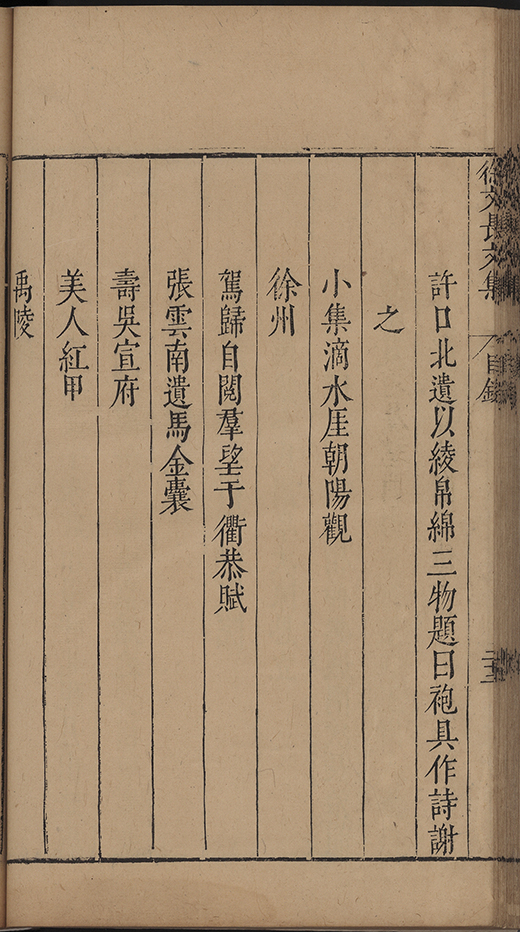 徐文長文集 目錄
許口北遺以綾帛綿三物題曰袍具作詩謝
之
小集滴水厓朝陽觀
徐州
駕歸自閱羣望于衢恭賦
張雲南遺馬金囊
壽吳宣府
美人紅甲
禹陵